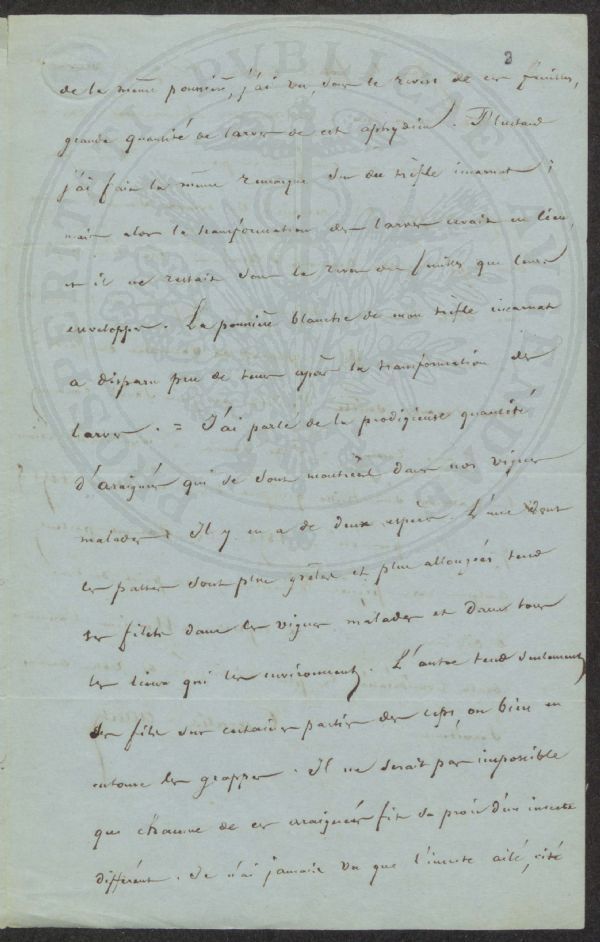 3
de la même poussière, j'ai vu, sous le revers de ces feuilles,
grande quantité de larves de cet aphydien. Plustard
j'ai fait la même remarque sur du trèfle incarnat ;
mais alors la transformation des larves avait eu lieu,
et il ne restait sous le revers des feuilles que leurs
enveloppes. La poussière blanche de mon trèfle incarnat
a disparu peu de tems après la transformation des
larves. = J'ai parlé de la prodigieuse quantité
d'araignées qui se sont montrées dans nos vignes
malades. Il y en a de deux espèces. L'une dont
les pattes sont plus grêles et plus allongées, tend
ses filets dans les vignes malades et dans tous
les lieux qui les environnent. L'autre tend seulement
des fils sur certaines parties des ceps, ou bien en
entoure les grappes. Il ne serait pas impossible
que chacune de ces araignées fit sa proie d'un insecte
différent. Je n'ai jamais vu que l'insecte ailé, cité
PROSPERITATI PUBLICAE AVGENDAE